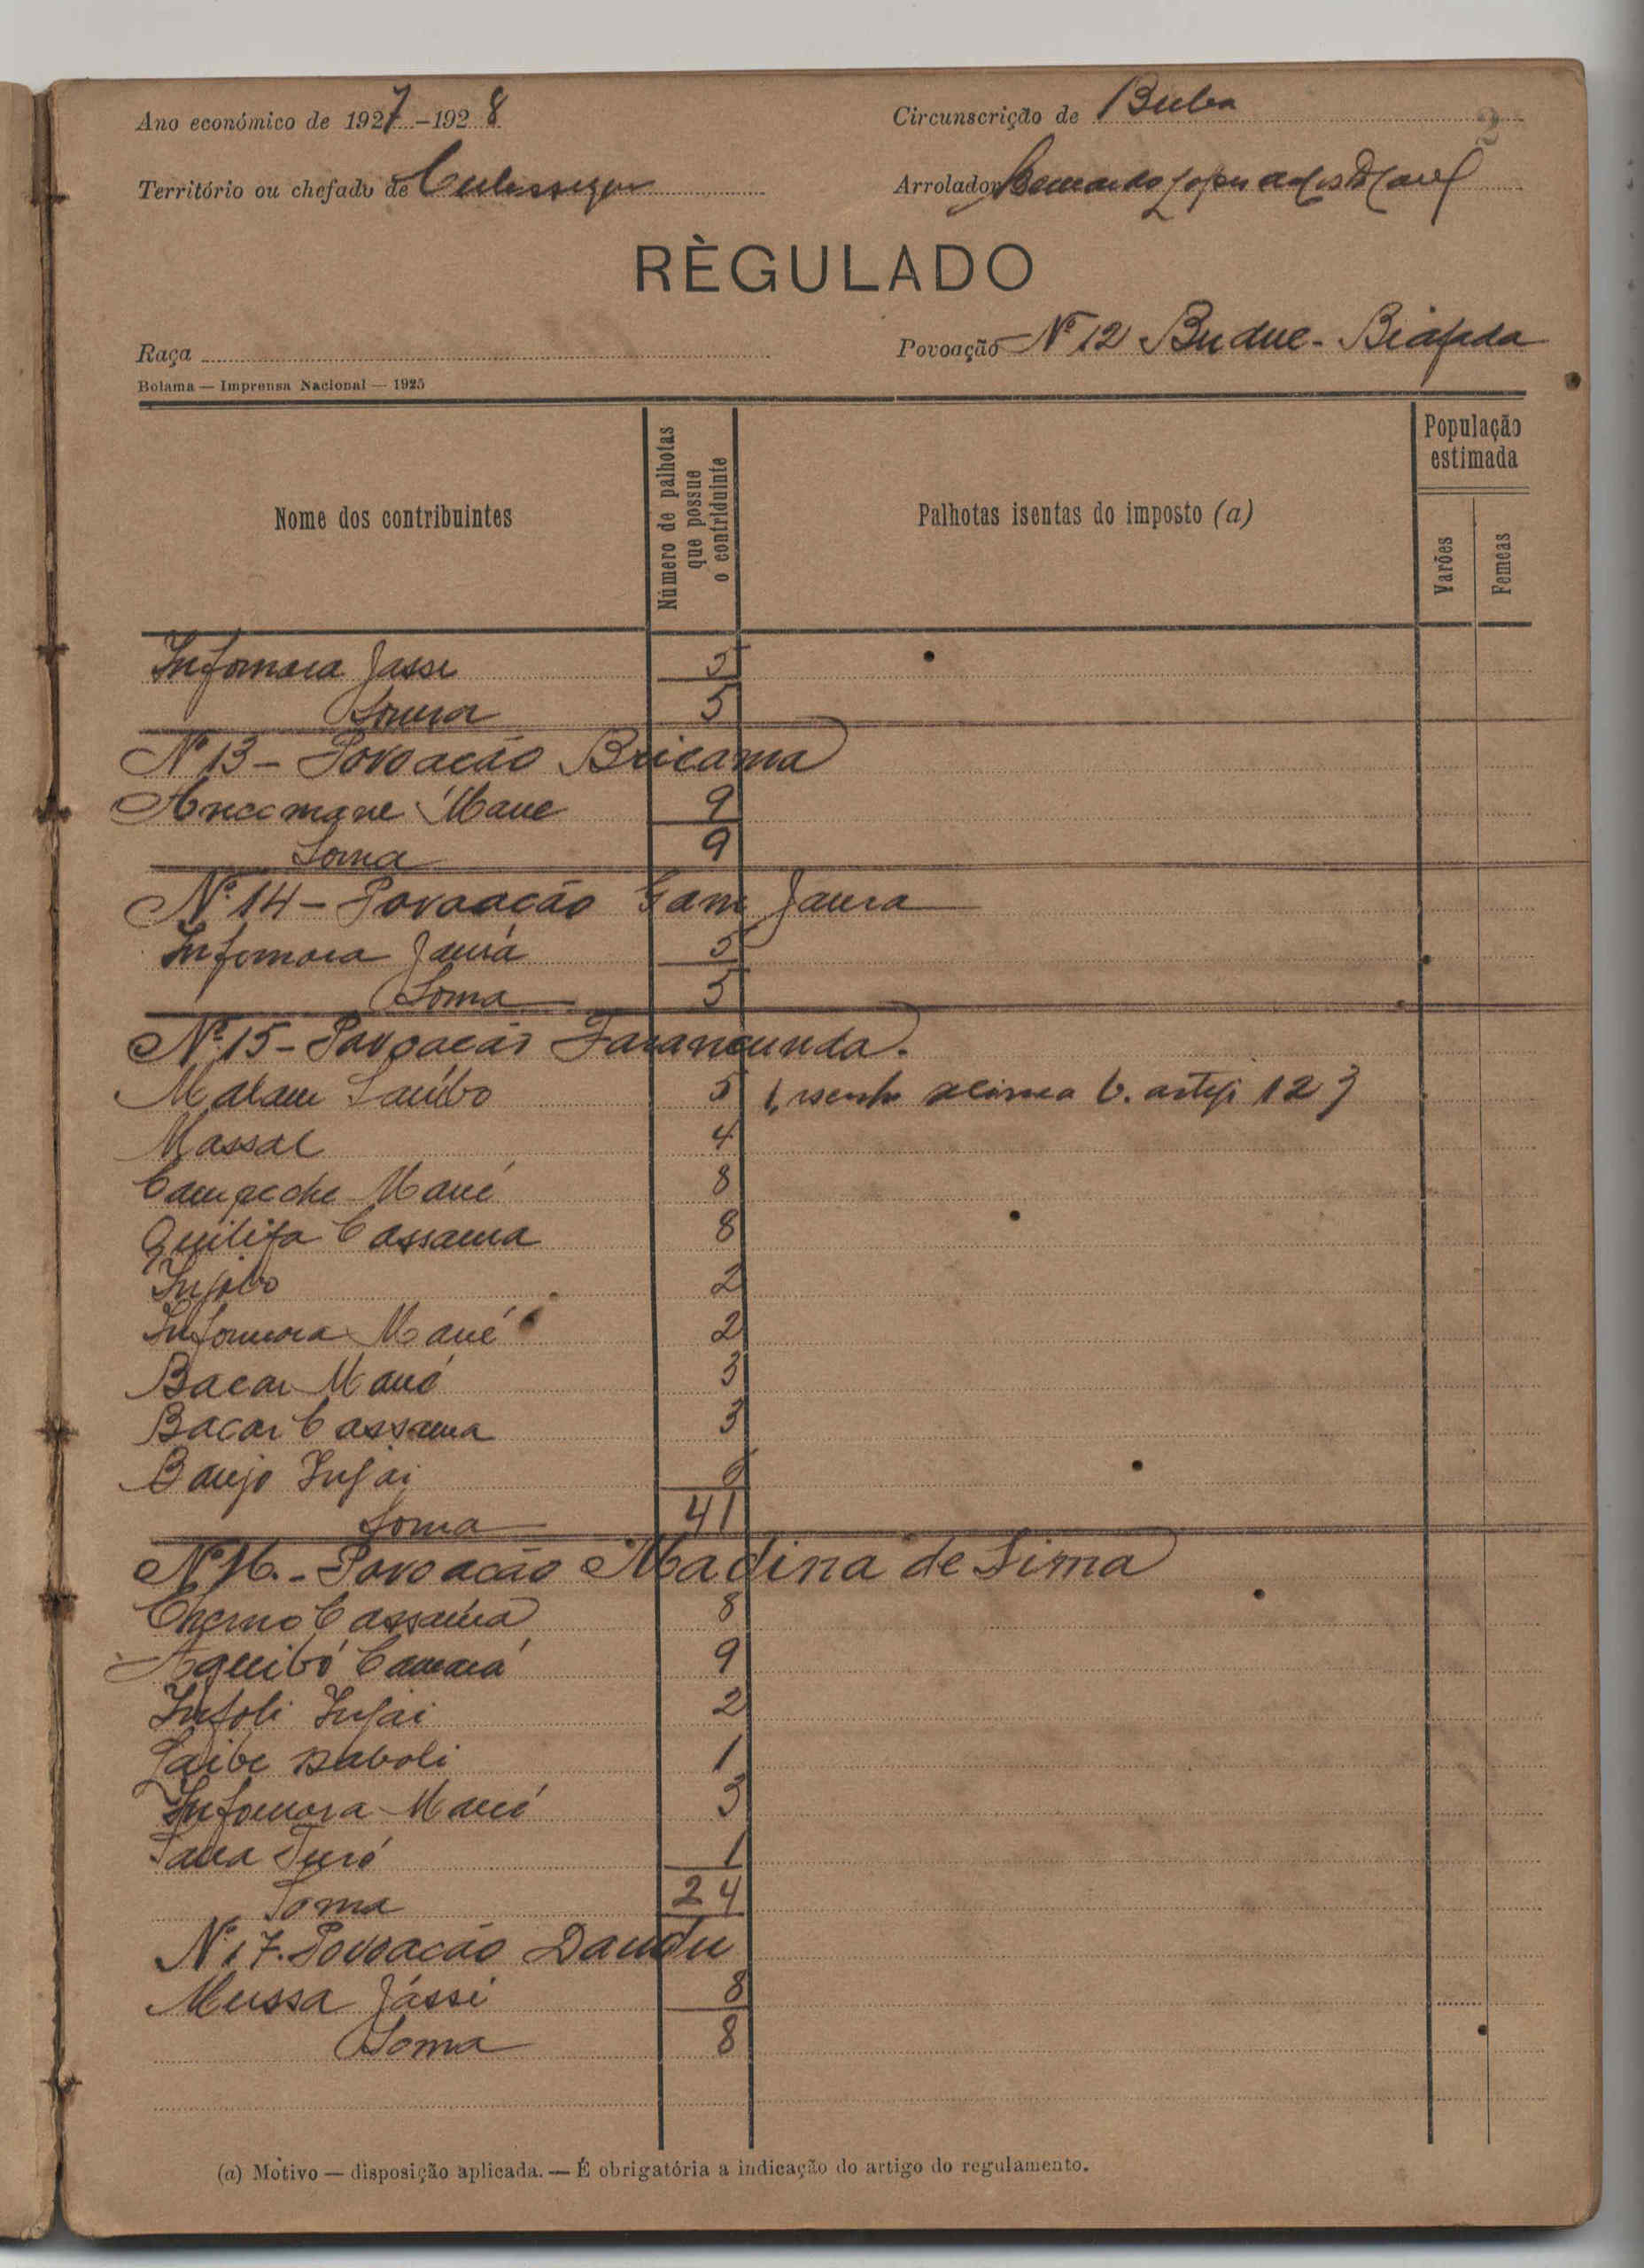 Ano económico de 1927-1928
Circunscrição de Buba
2
Território ou chefado de
Arrolador Bernardo Lopes
RÈGULADO
Raça
Povoação Nº 12 Budue - Biafada
Bolama — Imprensa Nacional — 1925
Nome dos contribuintes
Número de palhotas que possue o contriduinte
Palhotas isentas do imposto (a)
População estimada
Varões
Femeas
Infomara Jassi 5
Soma 5
Nº 13 - Povoação Bricama
Mane 9
Soma 9
Nº 14 - Povoação Gam Jaura
Infomara Jaurá 5
Soma 5
Nº 15 - Povoação Farancunda.
Malam Sambo 5 1, isento alinea b. artigo 12
Massal 4
Campeche Mané 8
Quilifa Cassama 8
2
Infomara Mané 2
Bacar Mané 3
Bacar Cassama 3
Banjo Injai 6
Soma 41
Nº 16. - Povoação Madina de Sima
Cherno Cassamá 8
Aquibó Camará 9
Infoli Injai 2
Laibe Saboli 1
Infomara Mané 3
Turé 1
Soma 24
Nº 17. Povoação Dandu
Mussa Jássi 8
Soma 8
(a) Motivo — disposição aplicada. — É obrigatória a indicação do artigo do regulamento.